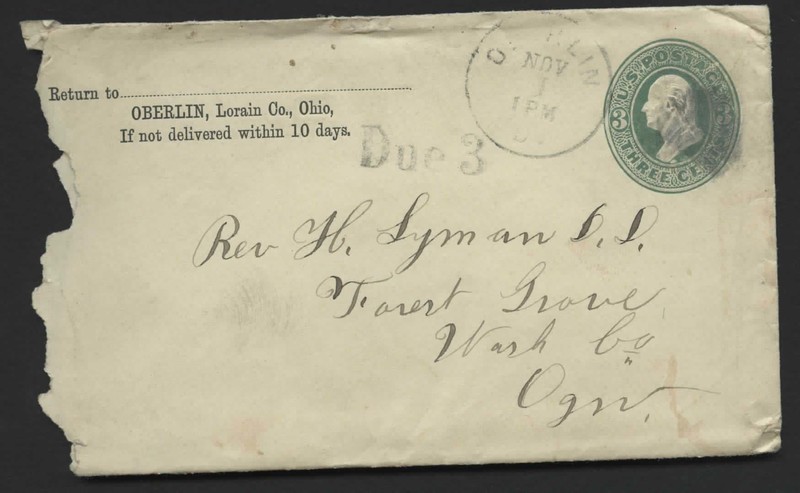 Return to
OBERLIN, Lorain Co., Ohio,
If not delivered within 10 days.
NOV
1
1 PM
Due 3
U.S. POSTAGE
3 3
THREE CENTS
Rev H. Lyman D. D.
Forest Grove
Wash Co
Ogn.